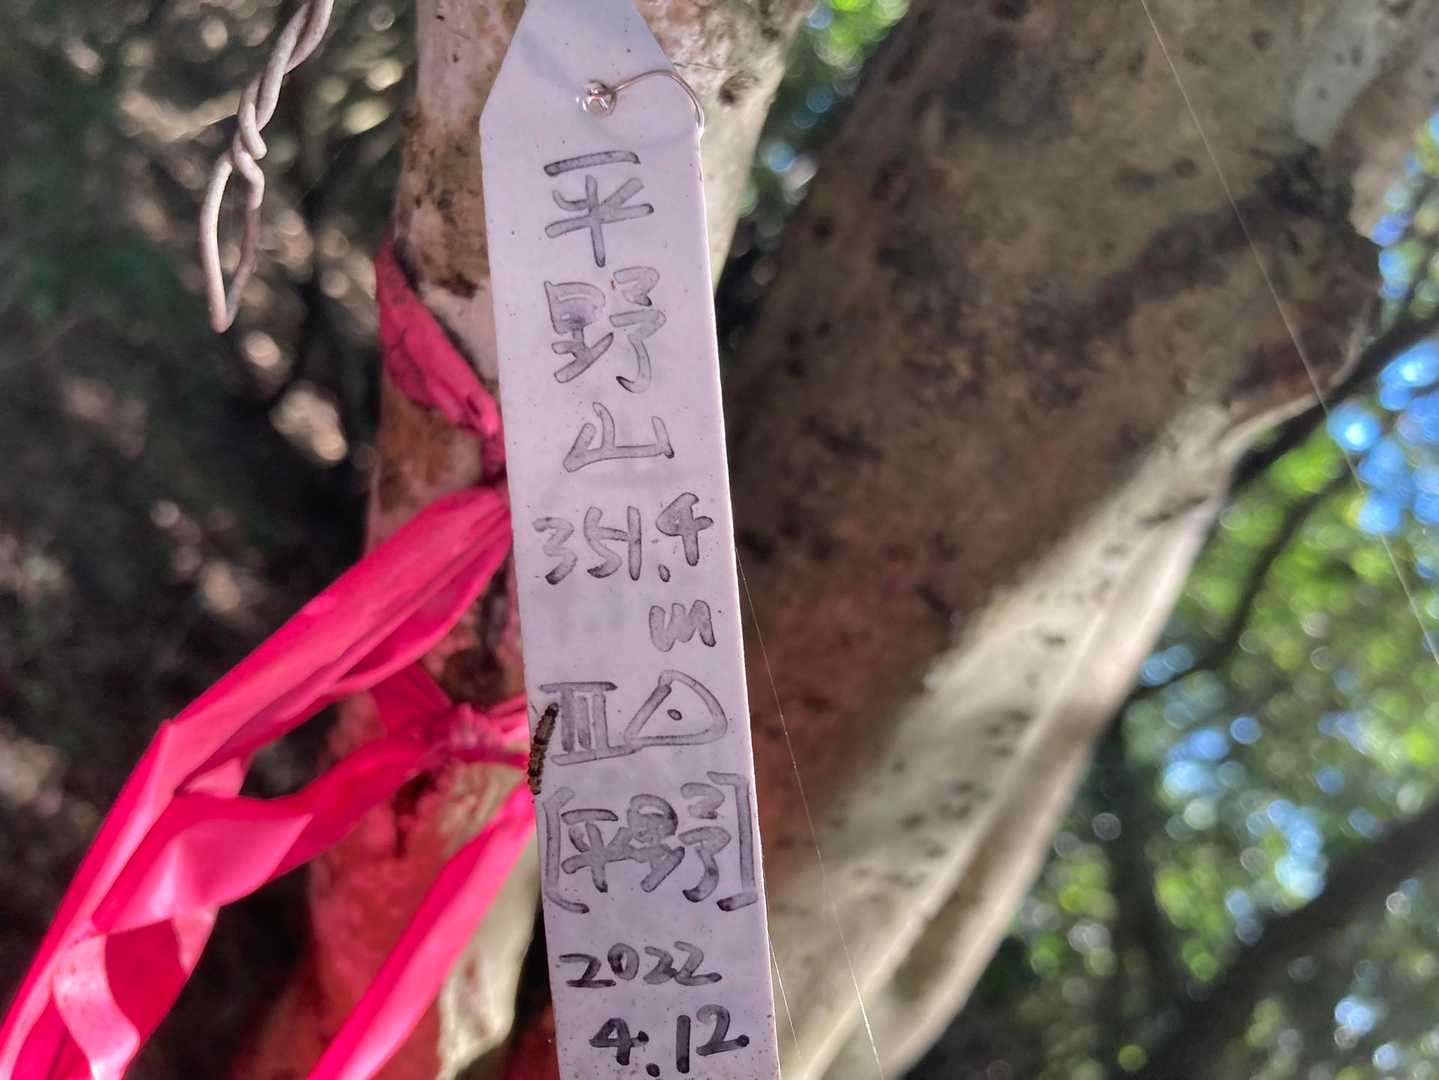 平野山
351.4
m
III △
[平野]
2022
4.12